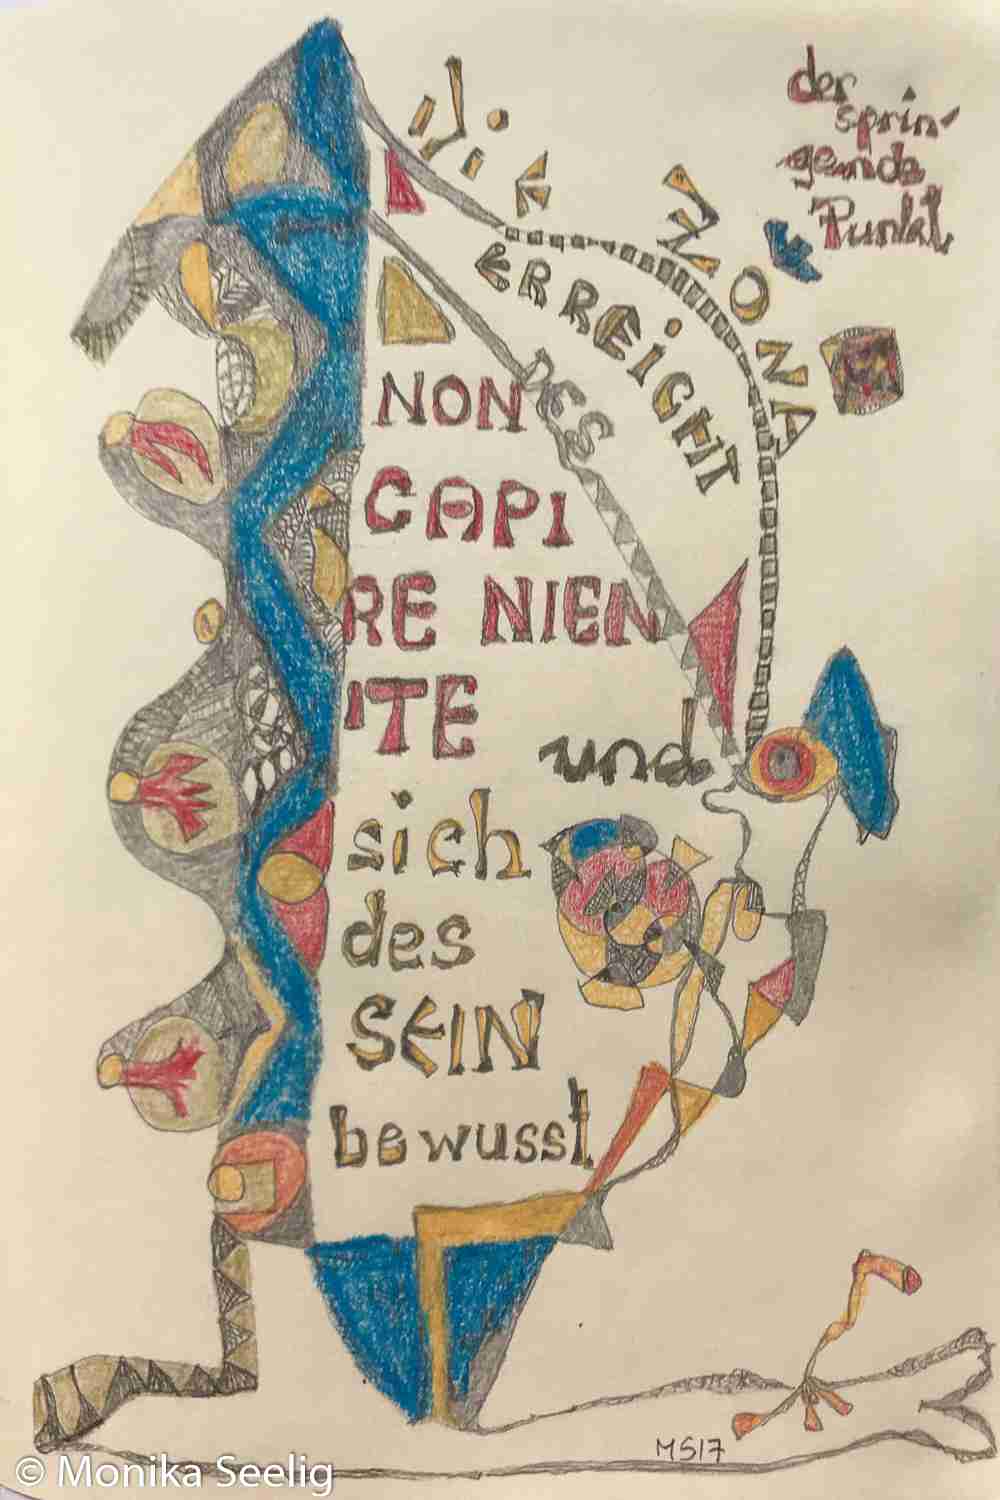 der
sprin-
gende
Punkt
die
ZONA
ERREICHT
DES
NON
CAPI
RE NIEN
TE
und
sich
des
SEIN
bewusst
MS17
© Monika Seelig